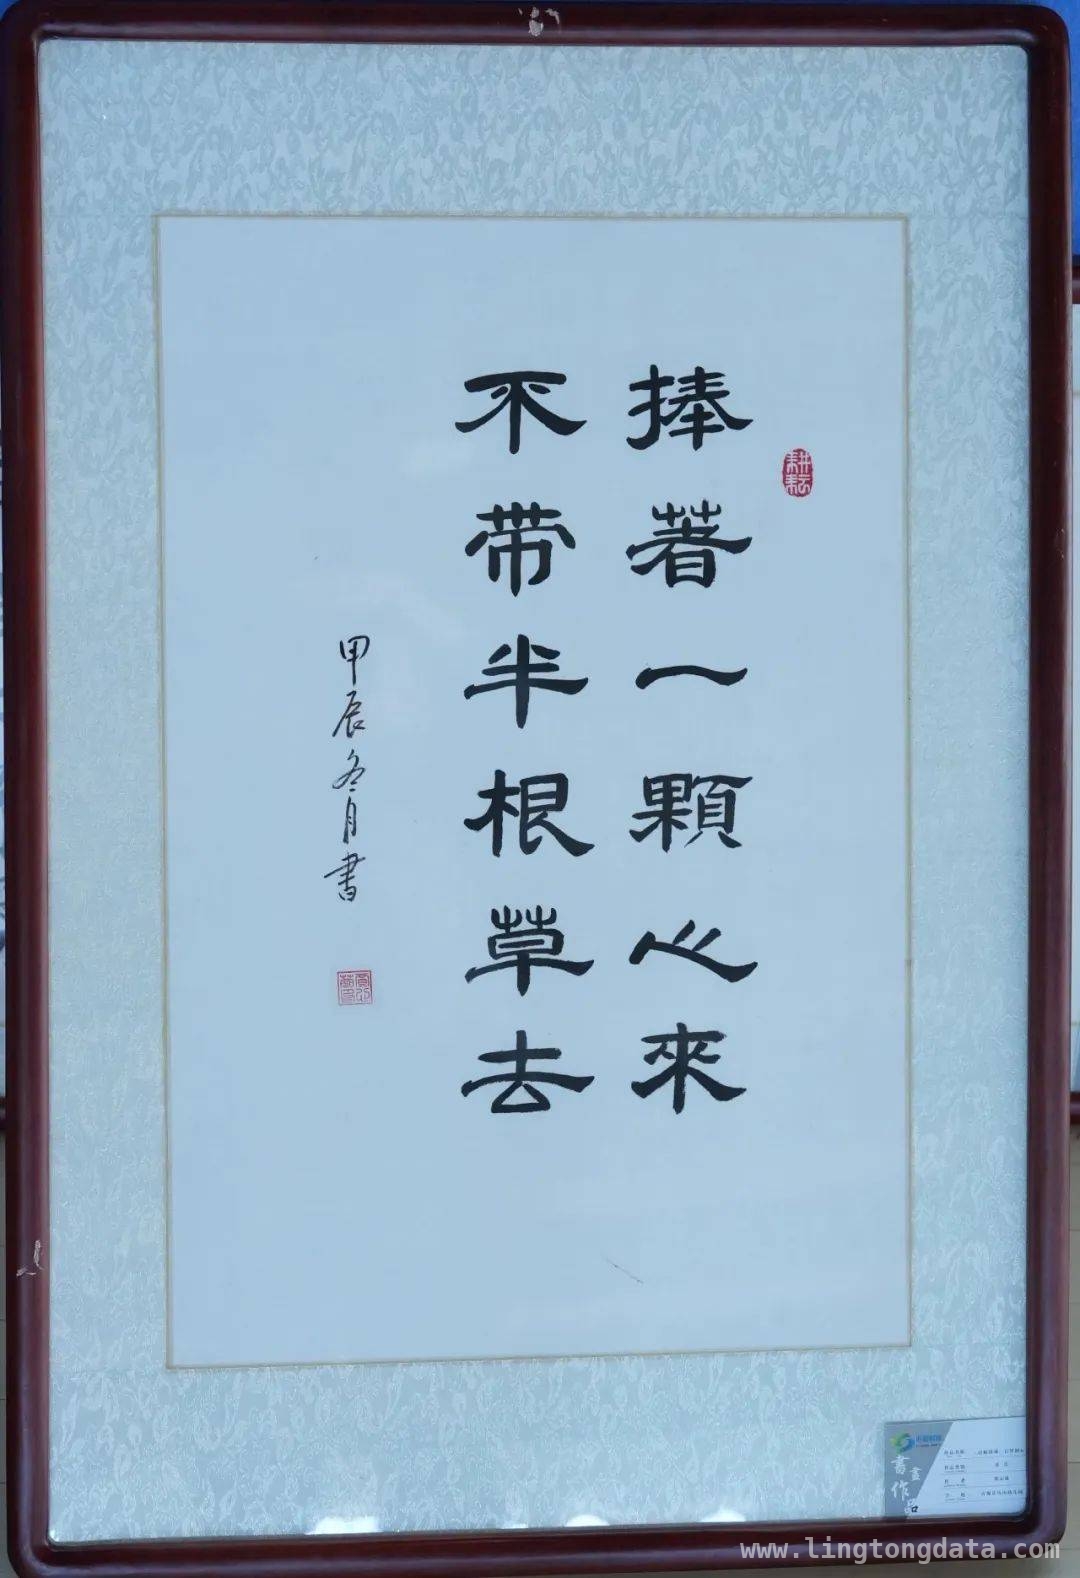 捧著一顆心來
不带半根草去
甲辰冬月書
耕耘
書畫作品
www.lingtongdata.com